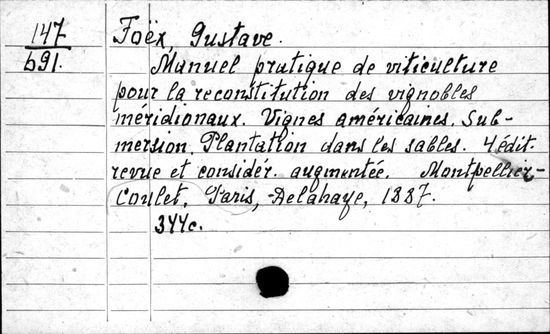 147
b91.
Foëx, Gustave.
Manuel pratique de viticulture
pour la reconstitution des vignobles
méridionaux. Vignes américaines. Sub-
mersion. Plantation dans les sables. 4 édit.
revue et considér. augmentée. Montpellier-
Coulet, Paris, Delahaye, 1887.
344c.